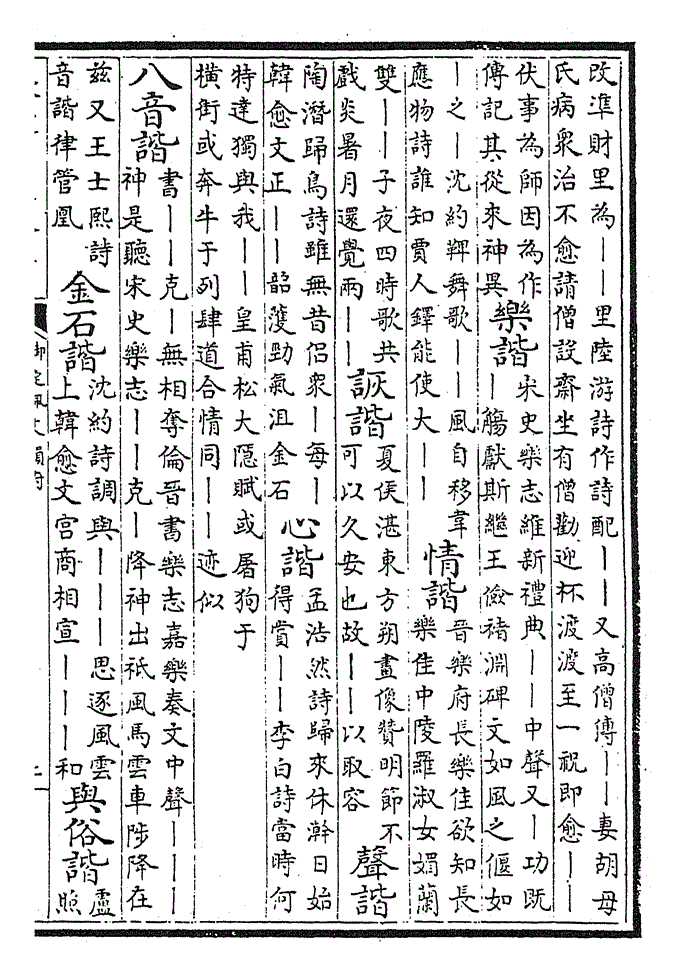 改準財里為——里陸游詩作詩配——又高僧傳——妻胡母
氏病衆治不愈請僧設齋坐有僧勸迎杯渡渡至一祝即愈——
伏事為師因為作
傳記其從來神異
樂諧
宋史樂志維新禮典——中聲又—功既
—觴獻斯繼王儉褚淵碑文如風之偃如
—之—沈約鞞舞歌——風自移韋
應物詩誰知賈人鐸能使大——
情諧
晉樂府長樂佳欲知長
樂佳中陵羅淑女媚蘭
雙——子夜四時歌共
戲炎暑月還覺兩——
詼諧
夏侯湛東方朔畫像贊明節不
可以久安也故——以取容
聲諧
陶潛歸鳥詩雖無昔侣衆—每—
韓愈文正——韶濩勁氣沮金石
心諧
孟浩然詩歸來休澣日始
得賞——李白詩當時何
特達獨與我——皇甫松大隱賦或屠狗于
橫街或奔牛于列肆道合情同——迹似
八音諧
書——克—無相奪倫晉書樂志嘉樂奏文中聲———
神是聽宋史樂志——克—降神出祇風馬雲車陟降在
兹又王士熙詩
音諧律管凰
金石諧
沈約詩調與———思逐風雲
上韓愈文宮商相宣———和
與俗諧
盧
照
御定佩文韻府